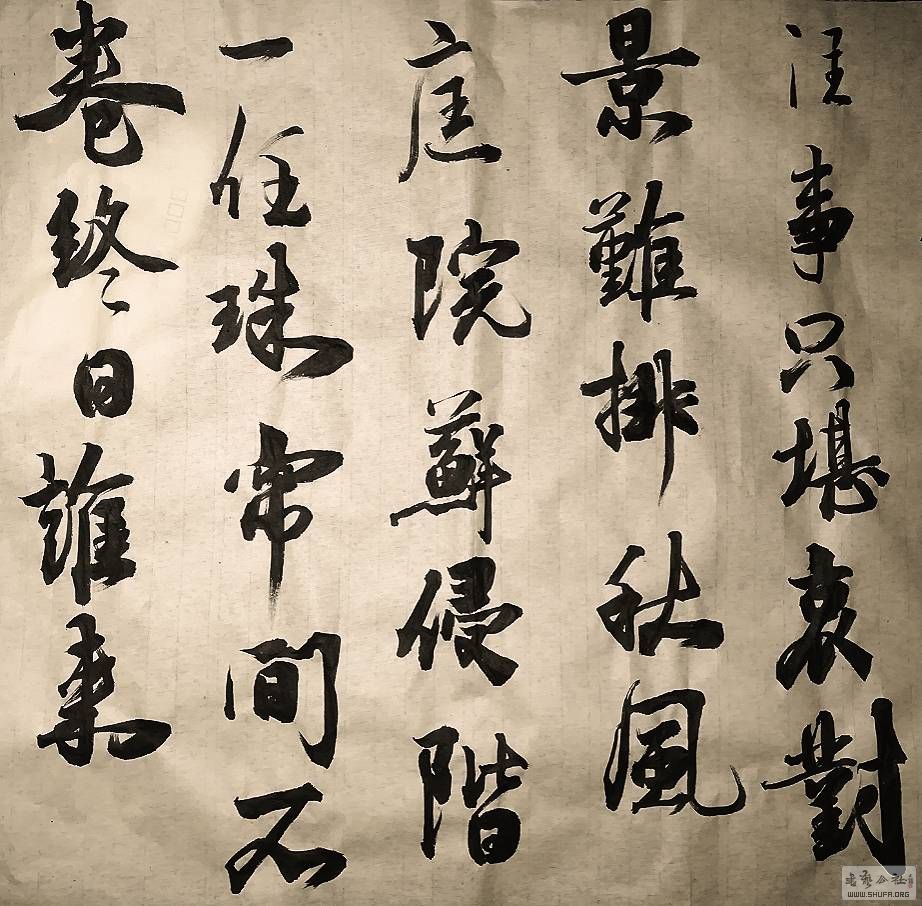 往事只堪哀對
景難排秋風
庭院蘚侵階
一任珠帘間不
卷終日誰來
书艺公社
WWW.SHUFA.ORG